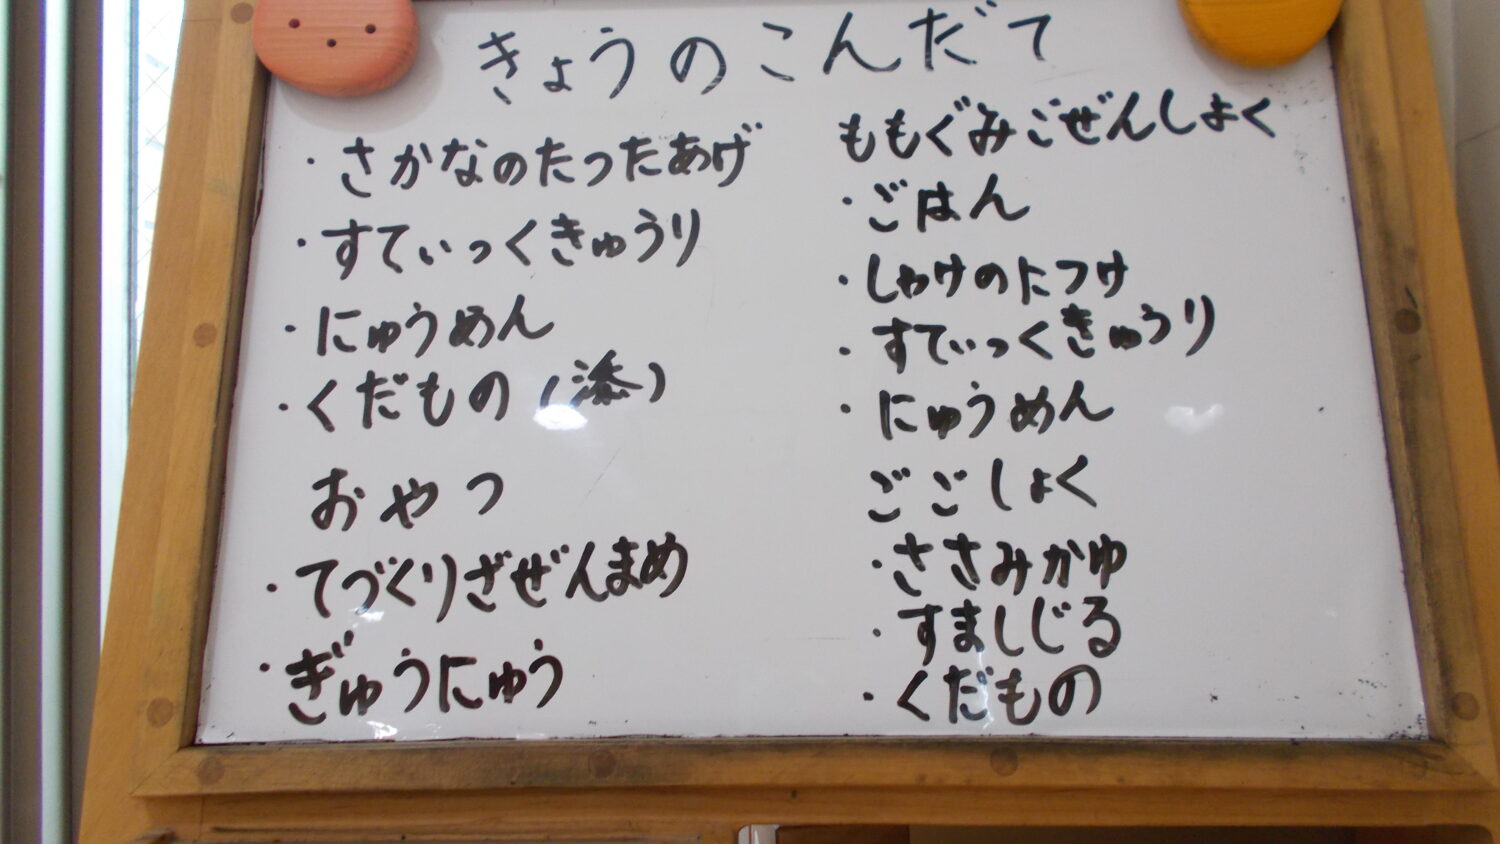 きょうのこんだて
・さかなのたつたあげ
・すてぃっくきゅうり
・にゅうめん
・くだもの(添)
おやつ
・てづくりざぜんまめ
・ぎゅうにゅう
ももぐみごぜんしょく
・ごはん
・しゃけのにつけ
・すてぃっくきゅうり
・にゅうめん
ごごしょく
・ささみかゆ
・すましじる
・くだもの